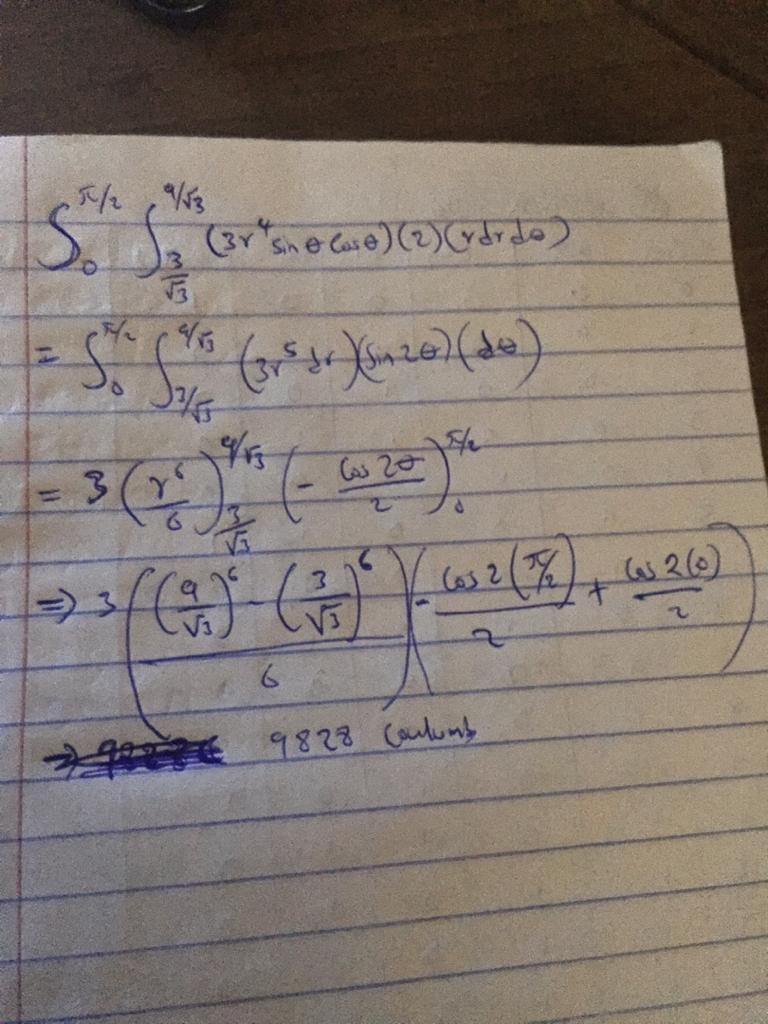 ∫₀^π/2 ∫_{3/√3}^{9/√3} (3r⁴ sin θ cos θ)(2)(r dr dθ)
= ∫₀^π/2 ∫_{3/√3}^{9/√3} (3r⁵ dr)(sin 2θ)(dθ)
= 3 (r⁶/6)_{3/√3}^{9/√3} (- cos 2θ/2)₀^π/2
⇒ 3 (((9/√3)⁶ - (3/√3)⁶)/6) (- cos 2(π/2)/2 + cos 2(0)/2)
⇒ 9828 Coulumb